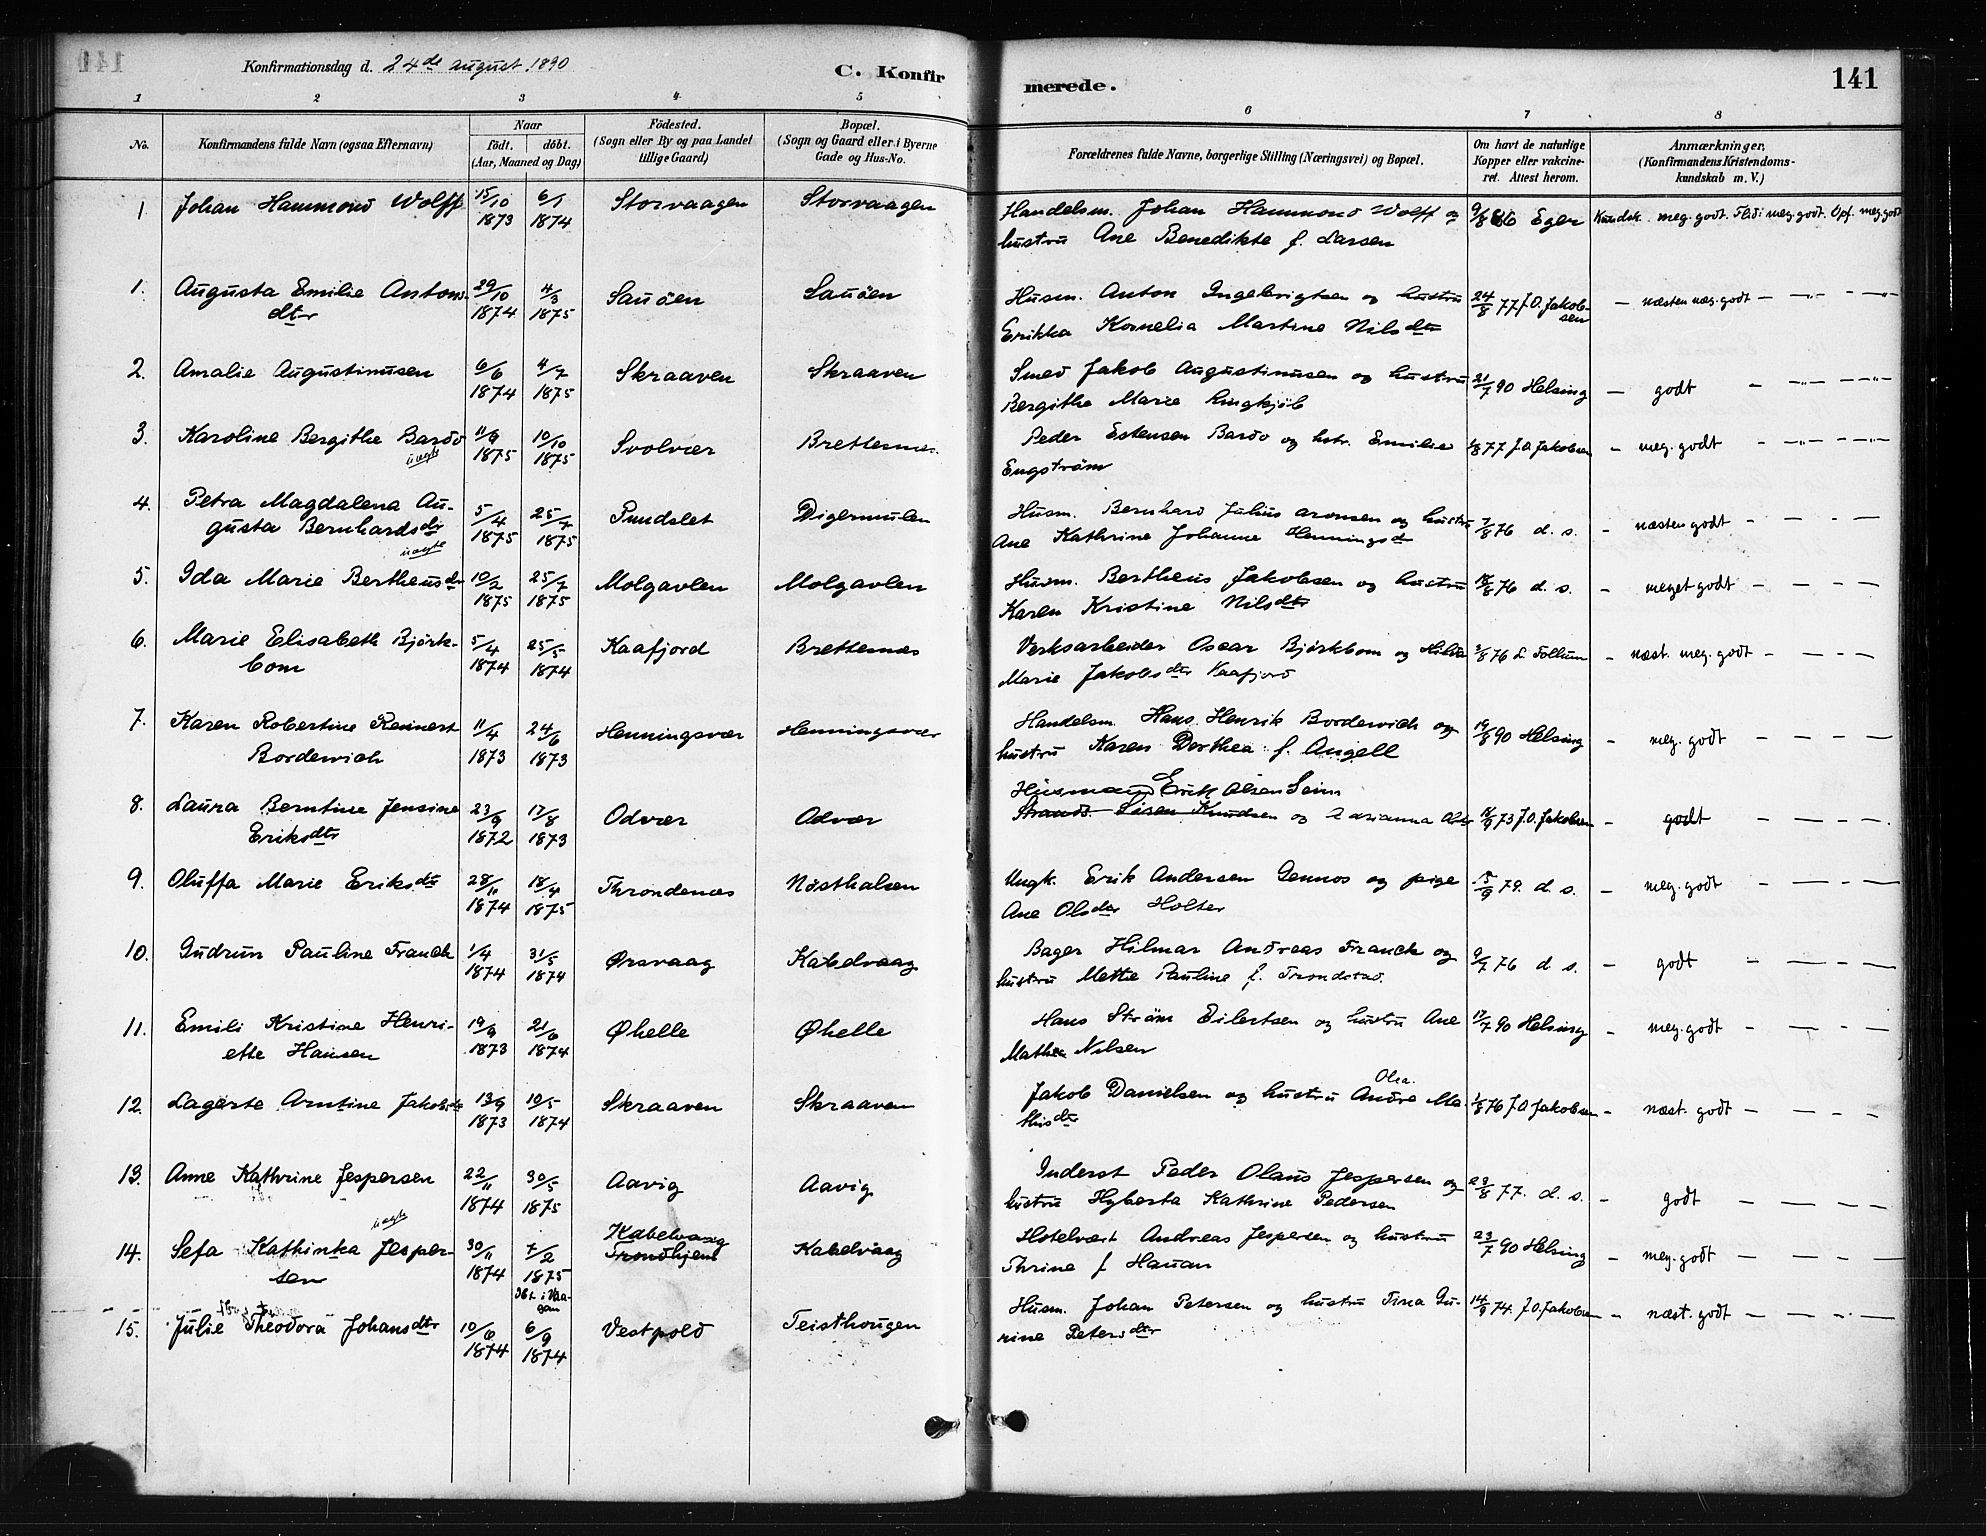 Konfirmationsdag d. 24de august 1890
C. Konfirmerede.
141
1 2 3 4 5 6 7 8
No.
Konfirmandens fulde Navn (ogsaa Efternavn)
Naar
födt. döbt.
(Aar, Maaned og Dag)
Födested.
(Sogn eller By og paa Landet
tillige Gaard)
Bopæl.
(Sogn og Gaard eller i Byerne
Gade og Hus-No.
Forældrenes fulde Navne, borgerlige Stilling (Næringsvei) og Bopæl.
Om havt de naturlige
Kopper eller vakcine-
ret. Attest herom.
Anmærkninger.
(Konfirmandens Kristendoms-
kundskab m. V.)
1 Johan Hammond Wolff 15/10 1873 6/1 1874 Storvaagen Storvaagen Handelsm. Johan Hammond Wolff og
hustru Ane Benedikte f. Larsen 9/8 86 Eger Kundsk. meg. godt. Flid meg. godt. Opf. meg. godt
1. Augusta Emilie Antons-
dtr 29/10 1874 4/3 1875 Sauöen Sauöen Husm. Anton Ingebrigtsen og hustru
Erikka Kornelia Martine Nilsdtr 24/8 77 J.O. Jakob-
sen — næsten meg. godt — „ — „ —
2. Amalie Augustinusen 6/6 1874 4/7 1875 Skraaven Skraaven Smed Jakob Augustinusen og hustru
Bergithe Marie Ringkjöb 21/7 90 Helsing — godt — „ — „ —
3. Karoline Bergithe Bardo
uægte 11/9 1875 10/10 1875 Svolvær Brettesnes Peder Estensen Bardo og hstr. Emilie
Engström /8 77 J.O. Jakobsen — meg. godt — „ — „ —
4. Petra Magdalena Au-
gusta Bernhardsdtr
uægte 5/4 1875 25/7 1875 Pundslet Digermulen Husm. Bernhard Julius Aronsen og hustru
Ane Kathrine Johanne Henningsdtr 7/8 76 d. s. — næsten godt — — —
5. Ida Marie Bertheusdtr 10/2 1875 25/7 1875 Molgavlen Molgavlen Husm. Bertheus Jakobsen og hustru
Karen Kristine Nilsdtr 18/8 76 d. s. — meget godt — — —
6. Marie Elisabeth Björk-
bom 5/4 1874 25/5 1874 Kaafjord Brettesnes Verksarbeider Oscar Björkbom og Hilda
Marie Jakobsdtr Kaafjord 3/8 76 L. Follum — næst. meg. godt — — —
7. Karen Robertine Reinert
Bordewich 11/4 1873 24/6 1873 Henningsvær Henningsvær Handelsm. Hans Henrik Bordewich og
hustru Karen Dorthea f. Angell 19/8 90 Helsing — meg. godt — — —
8. Laura Berntine Jensine
Eriksdtr 23/9 1872 17/8 1873 Odvær Odvær Husmand Erik Olsen Seim
Strands. Sören Knudsen og Marianna Olsdtr 18/9 73 J.O. Jakobsen — godt — — —
9. Oluffa Marie Eriksdtr 28/11 1874 18/4 1875 Throndenæs Nösthalsen Ungk. Erik Andersen Gennos og pige
Ane Olsdtr Holter 15/9 79. d. s. — meg. godt — — —
10. Gudrun Pauline Franck 1/4 1874 31/5 1874 Ørsvaag Kabelvaag Bager Hilmar Andreas Franck og
hustru Mette Pauline f. Trondstad. 9/7 76 d. s. — godt — — —
11. Emili Kristine Henri-
ette Hansen 19/9 1873 21/6 1874 Øhelle Øhelle Hans Ström Eilertsen og hustru Ane
Mathea Nilsen 17/7 90 Helsing — meg. godt — — —
12. Lagerte Arntine Jakobsdtr 13/9 1873 10/5 1874 Skraaven Skraaven Jakob Danielsen og hustru Andre Olea. Ma-
thisdtr 1/8 76 J.O Jakobsen — næst. godt — — —
13. Anne Kathrine Jespersen 22/11 1874 30/5 1875 Aavig Aavig Inderst Peder Olaus Jespersen og
hustru Hyberta Kathrine Pedersen 23/8 77. d. s. — godt — — —
14. Sefa Kathinka Jesper-
sen
uægte 30/11 1874 7/2 1875 Kabelvaag
Trondhjem Kabelvaag Hotelvært Andreas Jespersen og hustru
Thrine f Hauan 23/7 90 Helsing — meg. godt — — —
15. Julie Theodora Johansdtr 10/6 1874 Dbt. i Vaa-
gan 6/9 1874 Vestpold Teisthougen Husm. Johan Petersen og hustru Tina Gu-
rine Petersdtr 14/9 74. J.O. Jakobsen — næst. godt — — —